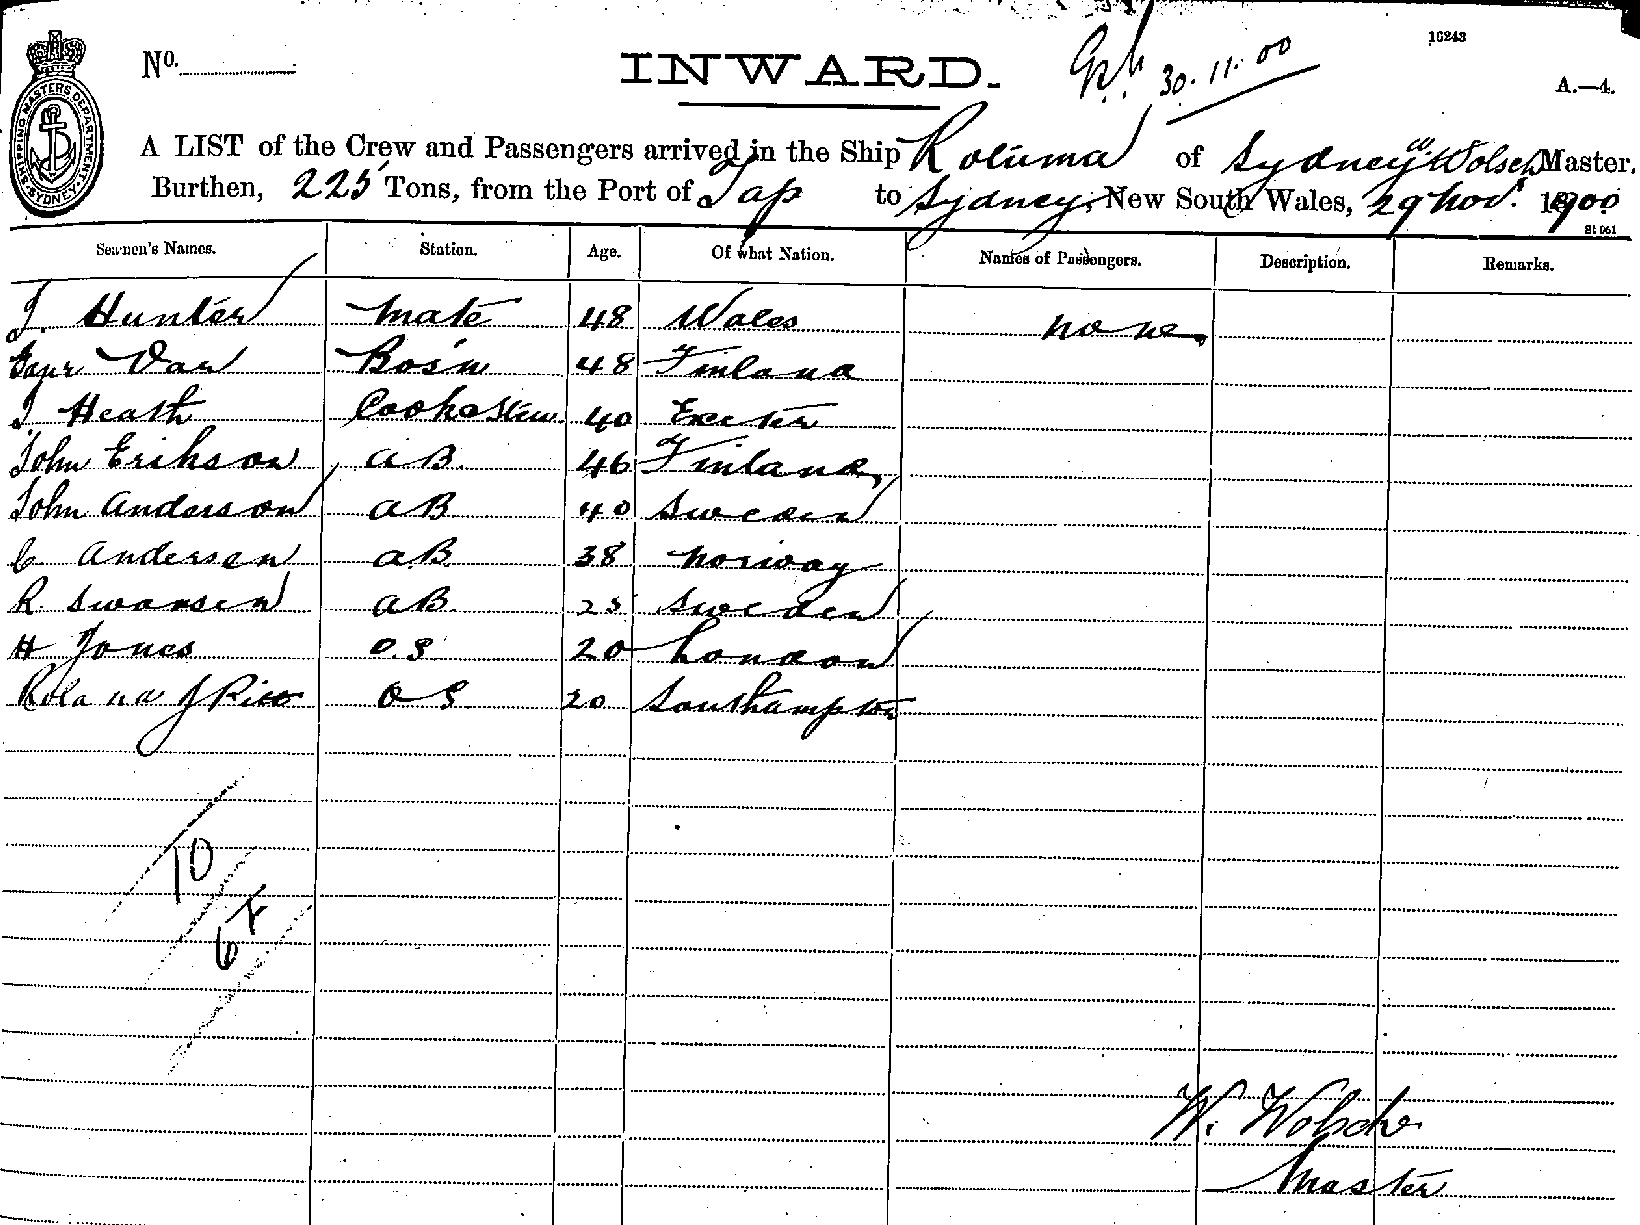 16243
No.
INWARD.
30.11.00
A.—4.
SHIPPING MASTERS DEPARTMENT SYDNEY
A LIST of the Crew and Passengers arrived in the Ship Rotuma of Sydney W Wolsch Master.
Burthen, 225 Tons, from the Port of Yap to Sydney, New South Wales, 29 Novr. 1900
St 061
Seamen's Names. Station. Age. Of what Nation. Names of Passengers. Description. Remarks.
J. Hunter Mate 48 Wales none
Van Bos'n 48 Finland
J. Heath Cook & Stew 40 Exeter
John Erikson AB. 46 Finland
John Anderson AB 40 Sweden
C Andersen AB. 38 Norway
R Swansen AB. 25 Sweden
H Jones O.S 20 London
Roland J Rico O S 20 Southampton
10
6 X
W. Wolsche
Master